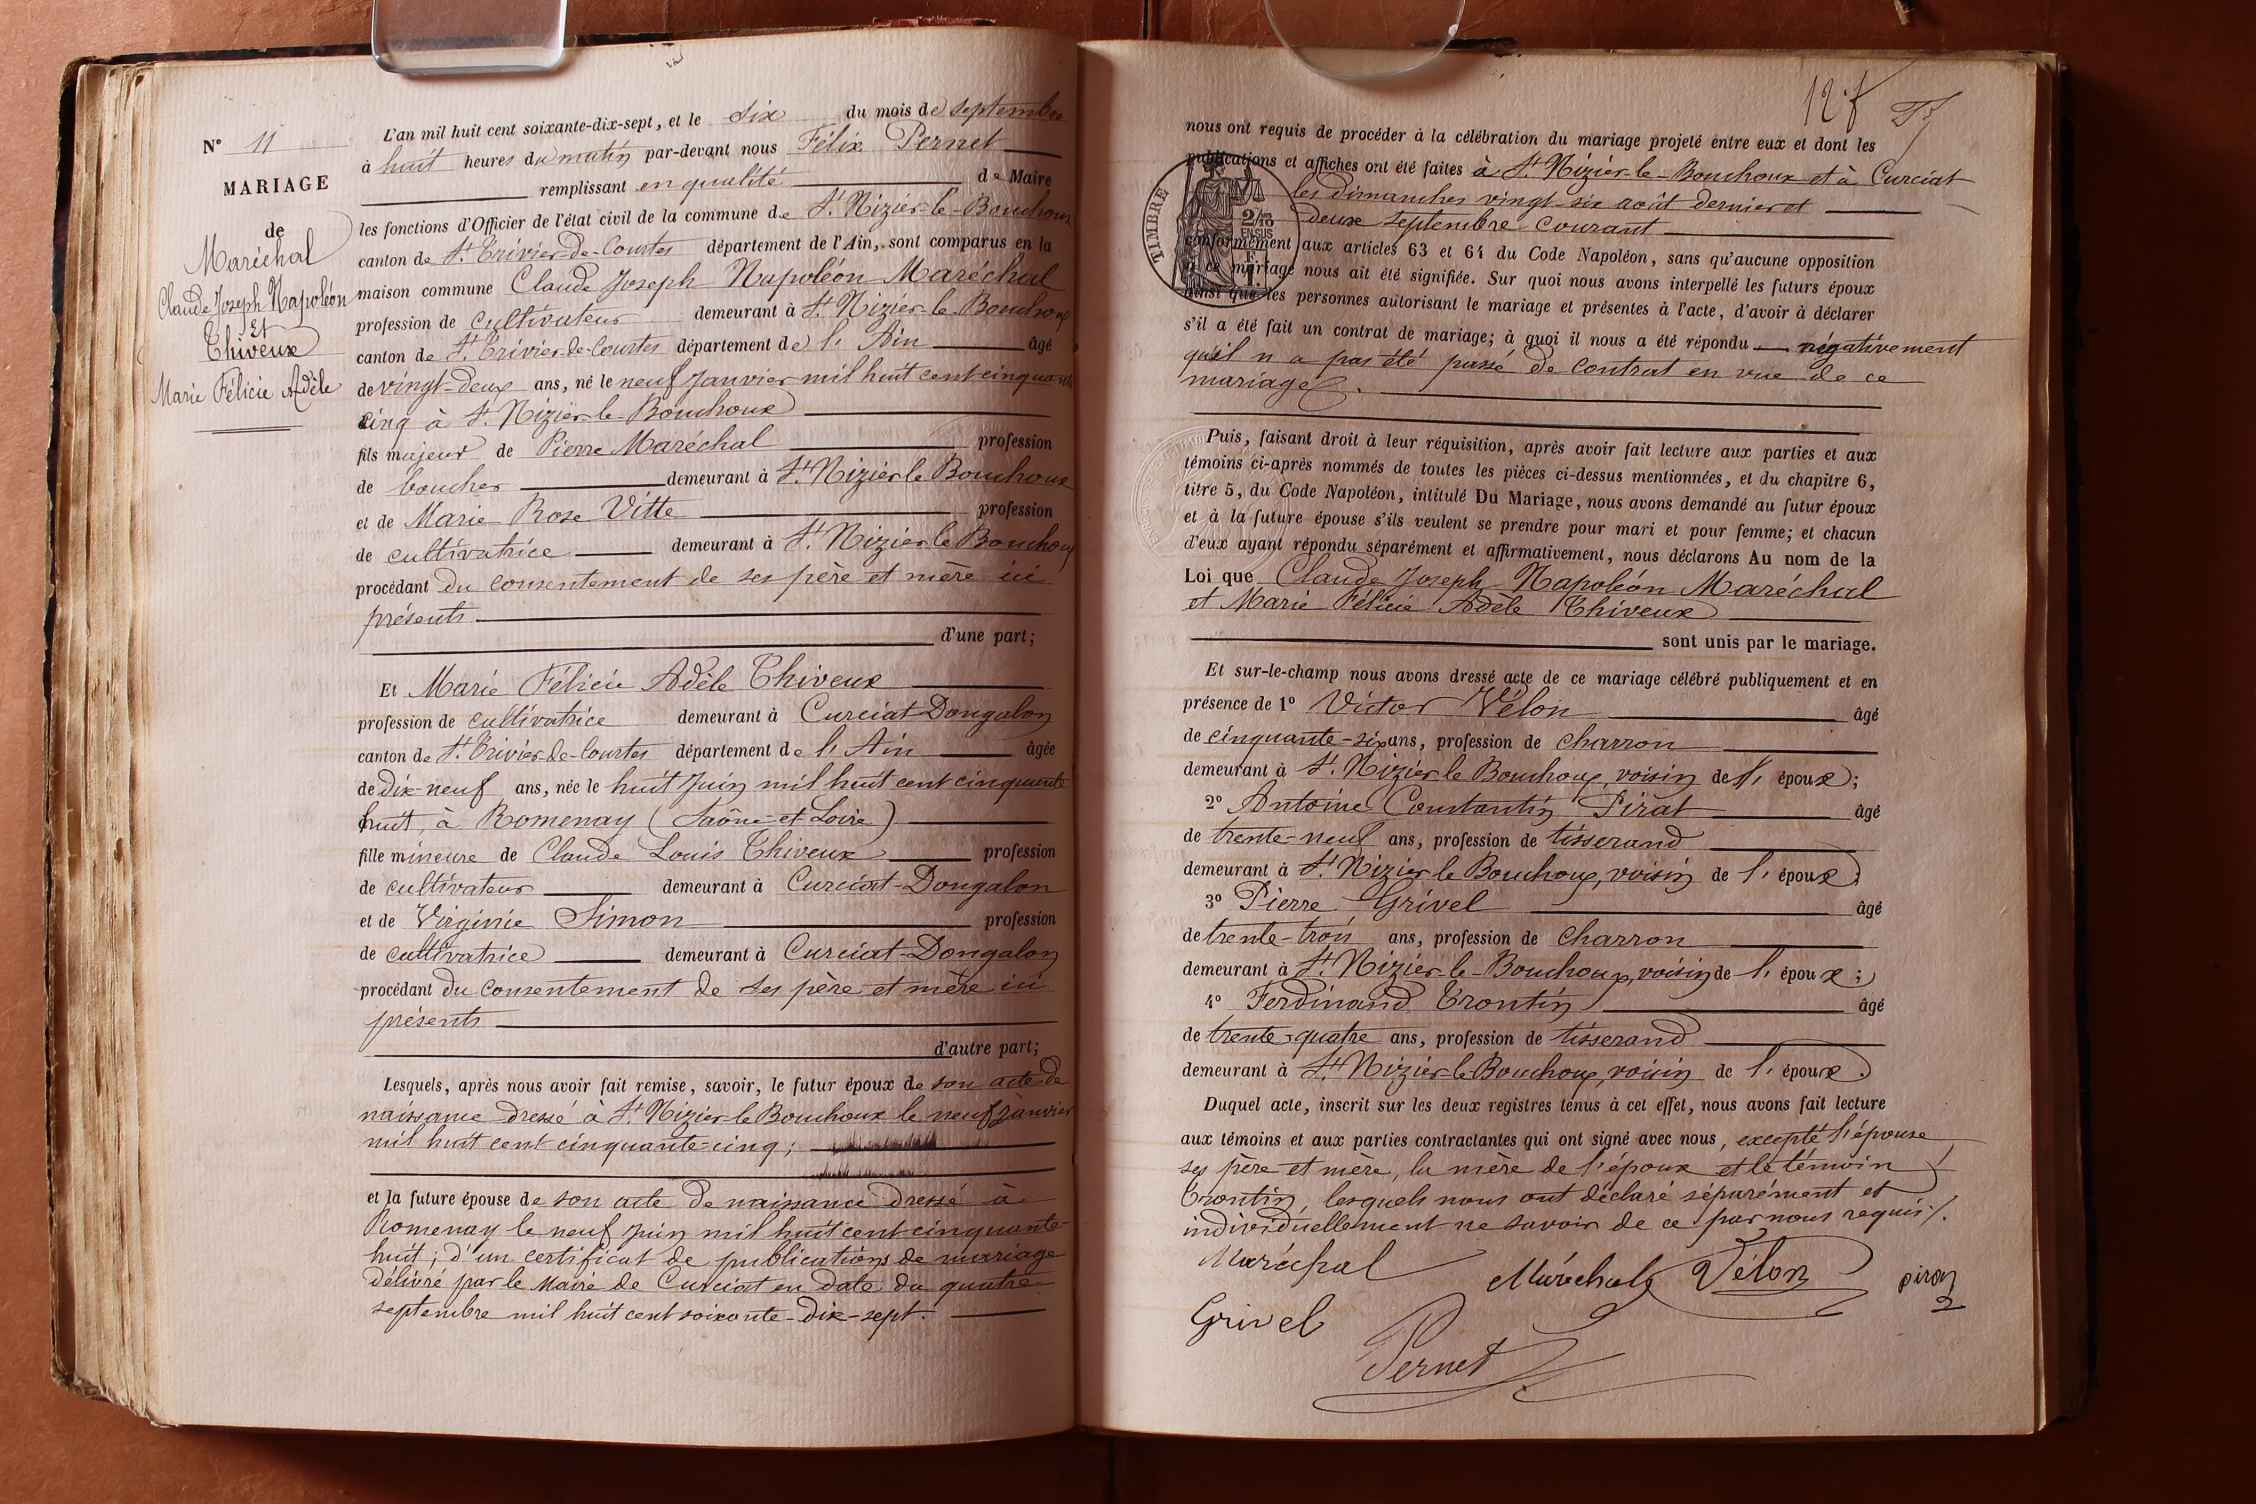 N° 11
MARIAGE
de
Maréchal
Claude Joseph Napoléon
Et
Thiveux
Marie Félicie Adèle
L'an mil huit cent soixante-dix-sept, et le six du mois de septembre
à huit heures du matin par-devant nous Félix Pernet
remplissant en qualité de Maire
les fonctions d'Officier de l'état civil de la commune de St. Nizier-le-Bouchoux
canton de St. Trivier-de-Courtes département de l'Ain, sont comparus en la
maison commune Claude Joseph Napoléon Maréchal
profession de cultivateur demeurant à St. Nizier-le-Bouchoux
canton de St. Trivier-de-Courtes département de l'Ain âgé
de vingt-deux ans, né le neuf Janvier mil huit cent cinquante
cinq à St. Nizier-le-Bouchoux
fils majeur de Pierre Maréchal profession
de boucher demeurant à St. Nizier le Bouchoux
et de Marie Rose Vitte profession
de cultivatrice demeurant à St. Nizier le Bouchoux
procédant du consentement de ses père et mère ici
présents
d'une part;
Et Marie Félicie Adèle Thiveux
profession de cultivatrice demeurant à Curciat-Dongalon
canton de St. Trivier-de-Courtes département de l'Ain âgée
de Dix-neuf ans, née le huit Juin mil huit cent cinquante
huit, à Romenay (Saône-et-Loire)
fille mineure de Claude Louis Thiveux profession
de cultivateur demeurant à Curciat-Dongalon
et de Virginie Simon profession
de cultivatrice demeurant à Curciat-Dongalon
procédant du consentement de ses père et mère ici
présents
d'autre part;
Lesquels, après nous avoir fait remise, savoir, le futur époux de son acte de
naissance dressé à St. Nizier-le-Bouchoux le neuf Janvier
mil huit cent cinquante-cinq;
et la future épouse de son acte de naissance dressé à
Romenay le neuf Juin mil huit cent cinquante-
huit; d'un certificat de publications de mariage
délivré par le Maire de Curciat en date du quatre
septembre mil huit cent soixante-dix-sept.
12 f
nous ont requis de procéder à la célébration du mariage projeté entre eux et dont les
publications et affiches ont été faites à St. Nizier-le-Bouchoux et à Curciat
les dimanches vingt-six août dernier et
deux septembre courant
conformément aux articles 63 et 64 du Code Napoléon, sans qu'aucune opposition
à ce mariage nous ait été signifiée. Sur quoi nous avons interpellé les futurs époux
ainsi que les personnes autorisant le mariage et présentes à l'acte, d'avoir à déclarer
s'il a été fait un contrat de mariage; à quoi il nous a été répondu négativement
qu'il n'a pas été passé de contrat en vue de ce
mariage.
TIMBRE
2/10
EN SUS
1 F.
Puis, faisant droit à leur réquisition, après avoir fait lecture aux parties et aux
témoins ci-après nommés de toutes les pièces ci-dessus mentionnées, et du chapitre 6,
titre 5, du Code Napoléon, intitulé Du Mariage, nous avons demandé au futur époux
et à la future épouse s'ils veulent se prendre pour mari et pour femme; et chacun
d'eux ayant répondu séparément et affirmativement, nous déclarons Au nom de la
Loi que Claude Joseph Napoléon Maréchal
et Marie Félicie Adèle Thiveux
sont unis par le mariage.
Et sur-le-champ nous avons dressé acte de ce mariage célébré publiquement et en
présence de 1° Victor Vélon âgé
de cinquante-six ans, profession de charron
demeurant à St. Nizier le Bouchoux, voisin de l'époux;
2° Antoine Constantin Pirat âgé
de trente-neuf ans, profession de tisserand
demeurant à St. Nizier le Bouchoux, voisin de l'époux;
3° Pierre Grivel âgé
de trente-trois ans, profession de charron
demeurant à St. Nizier-le-Bouchoux, voisin de l'époux;
4° Ferdinand Trontin âgé
de trente-quatre ans, profession de tisserand
demeurant à St. Nizier-le-Bouchoux, voisin de l'époux.
Duquel acte, inscrit sur les deux registres tenus à cet effet, nous avons fait lecture
aux témoins et aux parties contractantes qui ont signé avec nous, excepté l'épouse,
ses père et mère, la mère de l'époux et le témoin
Trontin, lesquels nous ont déclaré séparément et
individuellement ne savoir de ce par nous requis /.
Maréchal Maréchal Vélon
Grivel
Pernet